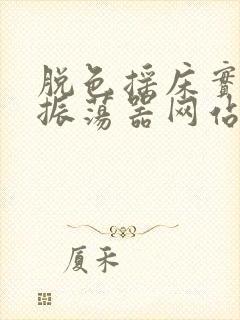 脱色摇床实
振荡器网站
厦禾